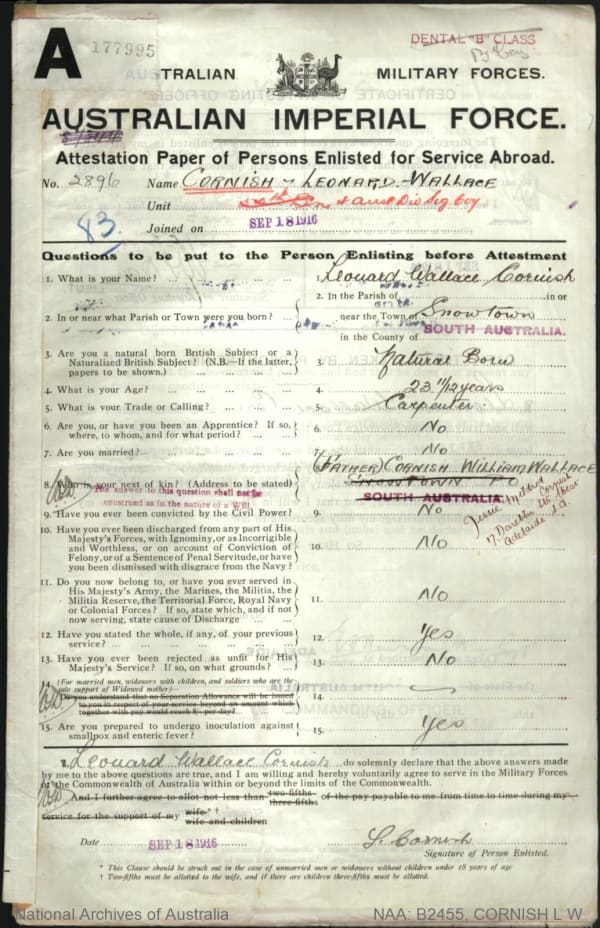 A
177995
DENTAL "B" CLASS
TRALIAN MILITARY FORCES.
AUSTRALIAN IMPERIAL FORCE.
Attestation Paper of Persons Enlisted for Service Abroad.
No. 2896 Name CORNISH - LEONARD - WALLACE
83. Unit
Joined on SEP 18 1916
Questions to be put to the Person Enlisting before Attestment
1. What is your Name? 1. Leonard Wallace Cornish
2. In or near what Parish or Town were you born? 2. In the Parish of in or
near the Town of Snowtown
in the County of SOUTH AUSTRALIA.
3. Are you a natural born British Subject or a
Naturalized British Subject? (N.B.—If the latter, 3. Natural Born
papers to be shown.)
4. What is your Age? 4. 23 11/12 years
5. What is your Trade or Calling? 5. Carpenter.
6. Are you, or have you been an Apprentice? If so, 6. No
where, to whom, and for what period?
7. Are you married? 7. No
8. Who is your next of kin? (Address to be stated) 8. (FATHER) CORNISH WILLIAM WALLACE
The answer to this question shall not be SNOWTOWN P.O
construed as in the nature of a Will. SOUTH AUSTRALIA.
Adelaide S.A.
9. Have you ever been convicted by the Civil Power? 9. No
10. Have you ever been discharged from any part of His
Majesty's Forces, with Ignominy, or as Incorrigible
and Worthless, or on account of Conviction of 10. No
Felony, or of a Sentence of Penal Servitude, or have
you been dismissed with disgrace from the Navy?
11. Do you now belong to, or have you ever served in
His Majesty's Army, the Marines, the Militia, the
Militia Reserve, the Territorial Force, Royal Navy 11. No
or Colonial Forces? If so, state which, and if not
now serving, state cause of Discharge
12. Have you stated the whole, if any, of your previous 12. Yes
service?
13. Have you ever been rejected as unfit for His 13. No
Majesty's Service? If so, on what grounds?
14. (For married men, widowers with children, and soldiers who are the
sole support of Widowed mother)—
Do you understand that no Separation Allowance will be issued 14.
to you in respect of your service beyond an amount which
together with pay would reach 8/- per day?
15. Are you prepared to undergo inoculation against 15. Yes
smallpox and enteric fever?
I, Leonard Wallace Cornish do solemnly declare that the above answers made
by me to the above questions are true, and I am willing and hereby voluntarily agree to serve in the Military Forces
of the Commonwealth of Australia within or beyond the limits of the Commonwealth.
And I further agree to allot not less than two-fifths three-fifths of the pay payable to me from time to time during my
service for the support of my wife* † wife and children
Date SEP 18 1916 L. Cornish
Signature of Person Enlisted.
* This Clause should be struck out in the case of unmarried men or widowers without children under 18 years of age
† Two-fifths must be allotted to the wife, and if there are children three-fifths must be allotted.
National Archives of Australia NAA: B2455, CORNISH L W